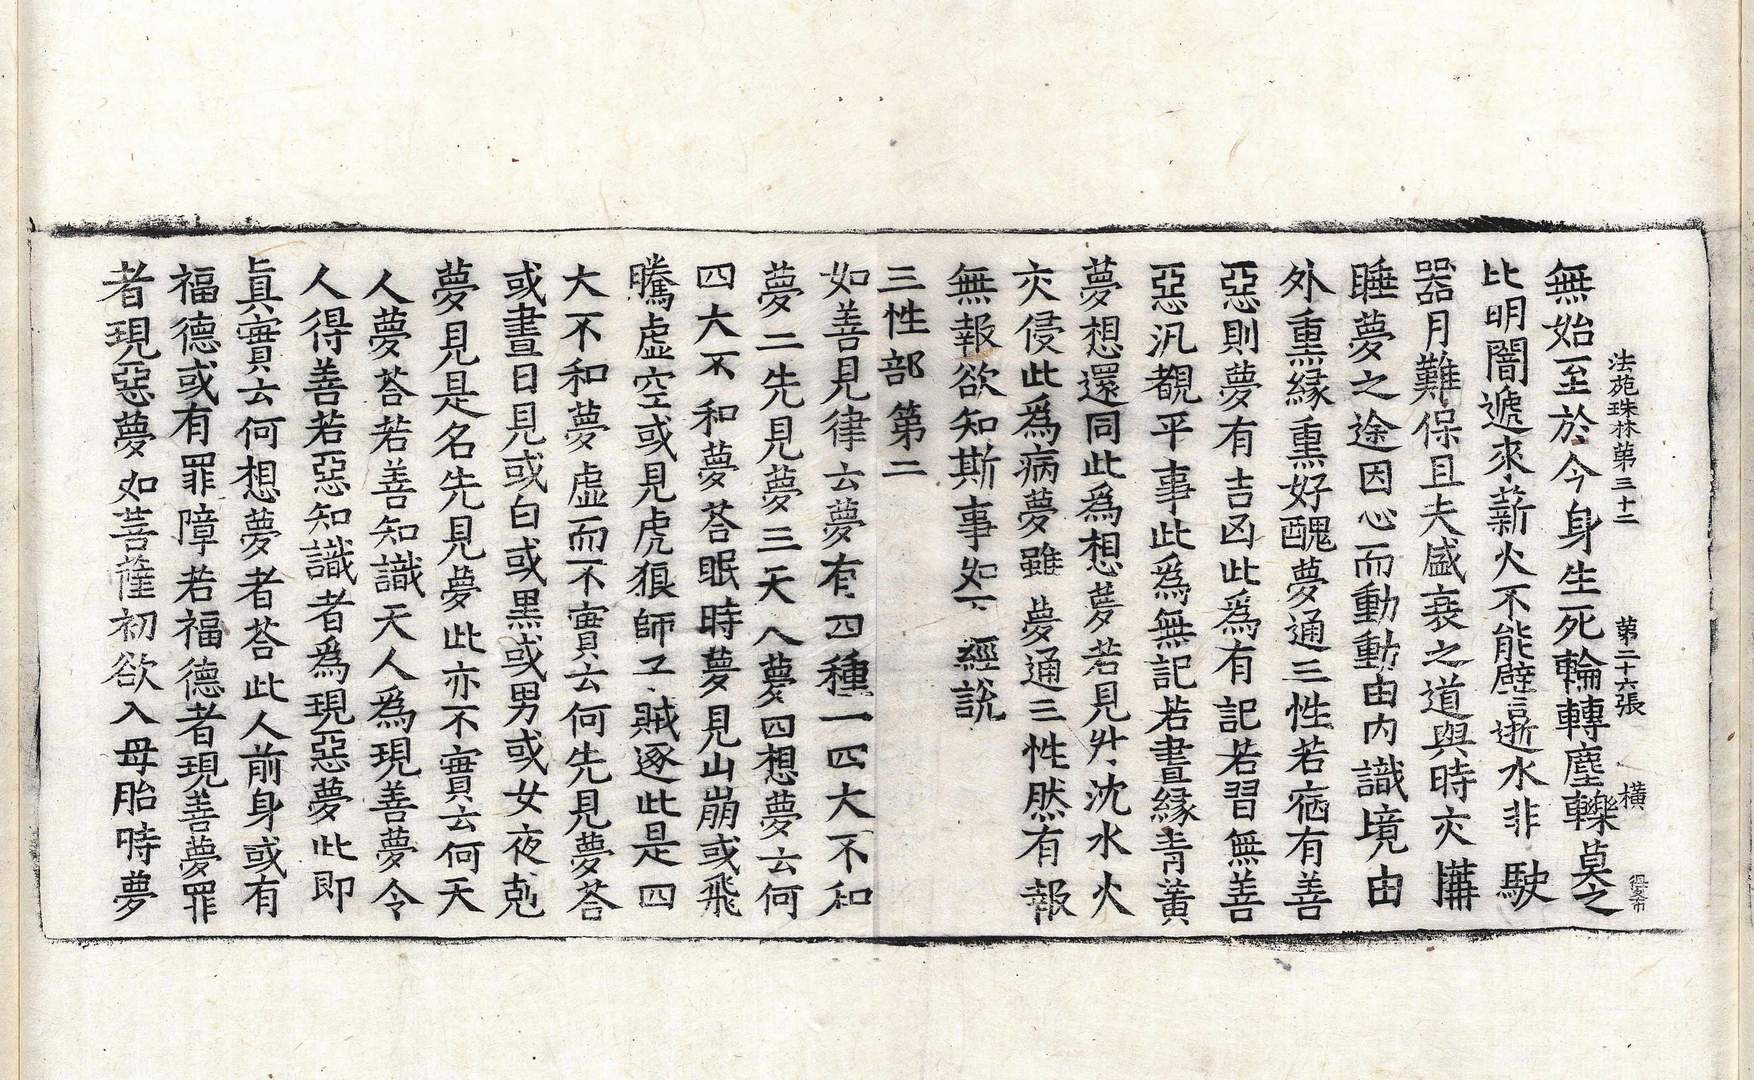 法苑珠林第三十二 第二十六張 橫
無始至於今身生死輪轉塵轢莫之
比明闇遞來薪火不能譬逝水非駛
器月難保且夫盛衰之道與時交購
睡夢之途因心而動動由內識境由
外熏緣熏好醜夢通三性若宿有善
惡則夢有吉凶此爲有記若習無善
惡汎覩平事此爲無記若晝緣青黃
夢想還同此爲想夢若見升沈水火
交侵此爲病夢雖夢通三性然有報
無報欲知斯事如下經說
三性部第二
如善見律云夢有四種一四大不和
夢二先見夢三天人夢四想夢云何
四大不和夢荅眠時夢見山崩或飛
騰虛空或見虎狼師子賊逐此是四
大不和夢虛而不實云何先見夢荅
或晝日見或白或黑或男或女夜剋
夢見是名先見夢此亦不實云何天
人夢荅若善知識天人爲現善夢令
人得善若惡知識者爲現惡夢此即
眞實云何想夢者荅此人前身或有
福德或有罪障若福德者現善夢罪
者現惡夢如菩薩初欲入母胎時夢